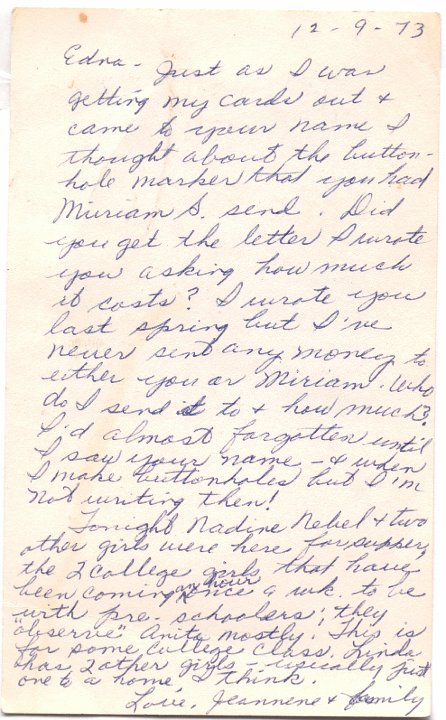 12-9-73
Edna - Just as I was
getting my cards out +
came to your name I
thought about the button-
hole marker that you had
Miriam S. send. Did
you get the letter I wrote
you asking how much
it costs? I wrote you
last spring but I've
never sent any money to
either you or Miriam. Who
do I send it to + how much?
I'd almost forgotten until
I saw your name - + when
I make buttonholes but I'm
not writing then!
Tonight Nadine Nebel + two
other girls were here for supper,
the 2 college girls that have
been coming an hour once a wk. to be
with pre-schoolers; they
"observe" Anita mostly. This is
for some college class. Linda
has 2 other girls - usually just
one to a home I think.
Love, Jeannene + family